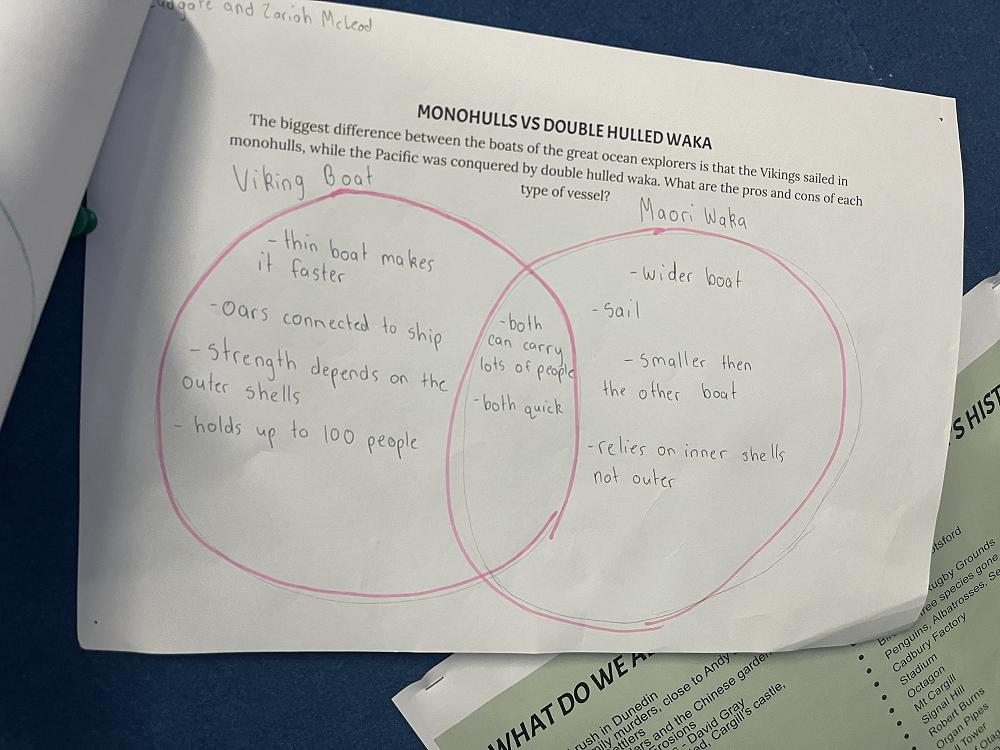 and Zariah McLeod
MONOHULLS VS DOUBLE HULLED WAKA
The biggest difference between the boats of the great ocean explorers is that the Vikings sailed in
monohulls, while the Pacific was conquered by double hulled waka. What are the pros and cons of each
type of vessel?
Viking Boat
- thin boat makes
it faster
- Oars connected to ship
- strength depends on the
outer shells
- holds up to 100 people
- both
can carry
lots of people
- both quick
Maori Waka
- wider boat
- sail
- smaller then
the other boat
- relies on inner shells
not outer
S HIST
WHAT DO WE
rush in Dunedin
murders, close to Andy
and the Chinese garden
- David Gray
Cargill's castle,
Rugby Grounds
species gone
Penguins, Albatrosses,
Cadbury Factory
Stadium
Octagon
Mt Cargill
Signal Hill
Robert Burns
Organ Pipes
Tower